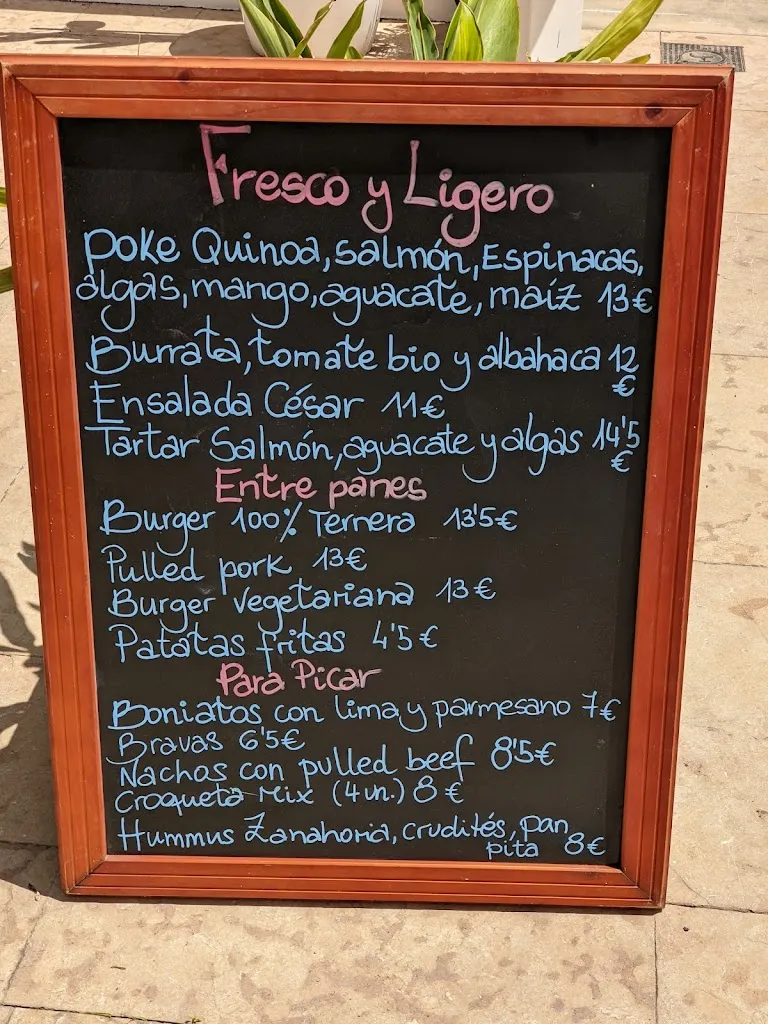 Fresco y Ligero
Poke Quinoa, salmón, Espinacas,
algas, mango, aguacate, maíz 13€
Burrata, tomate bio y albahaca 12
€
Ensalada César 11€
Tartar Salmón, aguacate y algas 14'5
€
Entre panes
Burger 100% Ternera 13'5€
Pulled pork 13€
Burger vegetariana 13€
Patatas fritas 4'5€
Para Picar
Boniatos con lima y parmesano 7€
Bravas 6'5€
Nachos con pulled beef 8'5€
Croqueta Mix (4un.) 8€
Hummus Zanahoria, crudités, pan
pita 8€